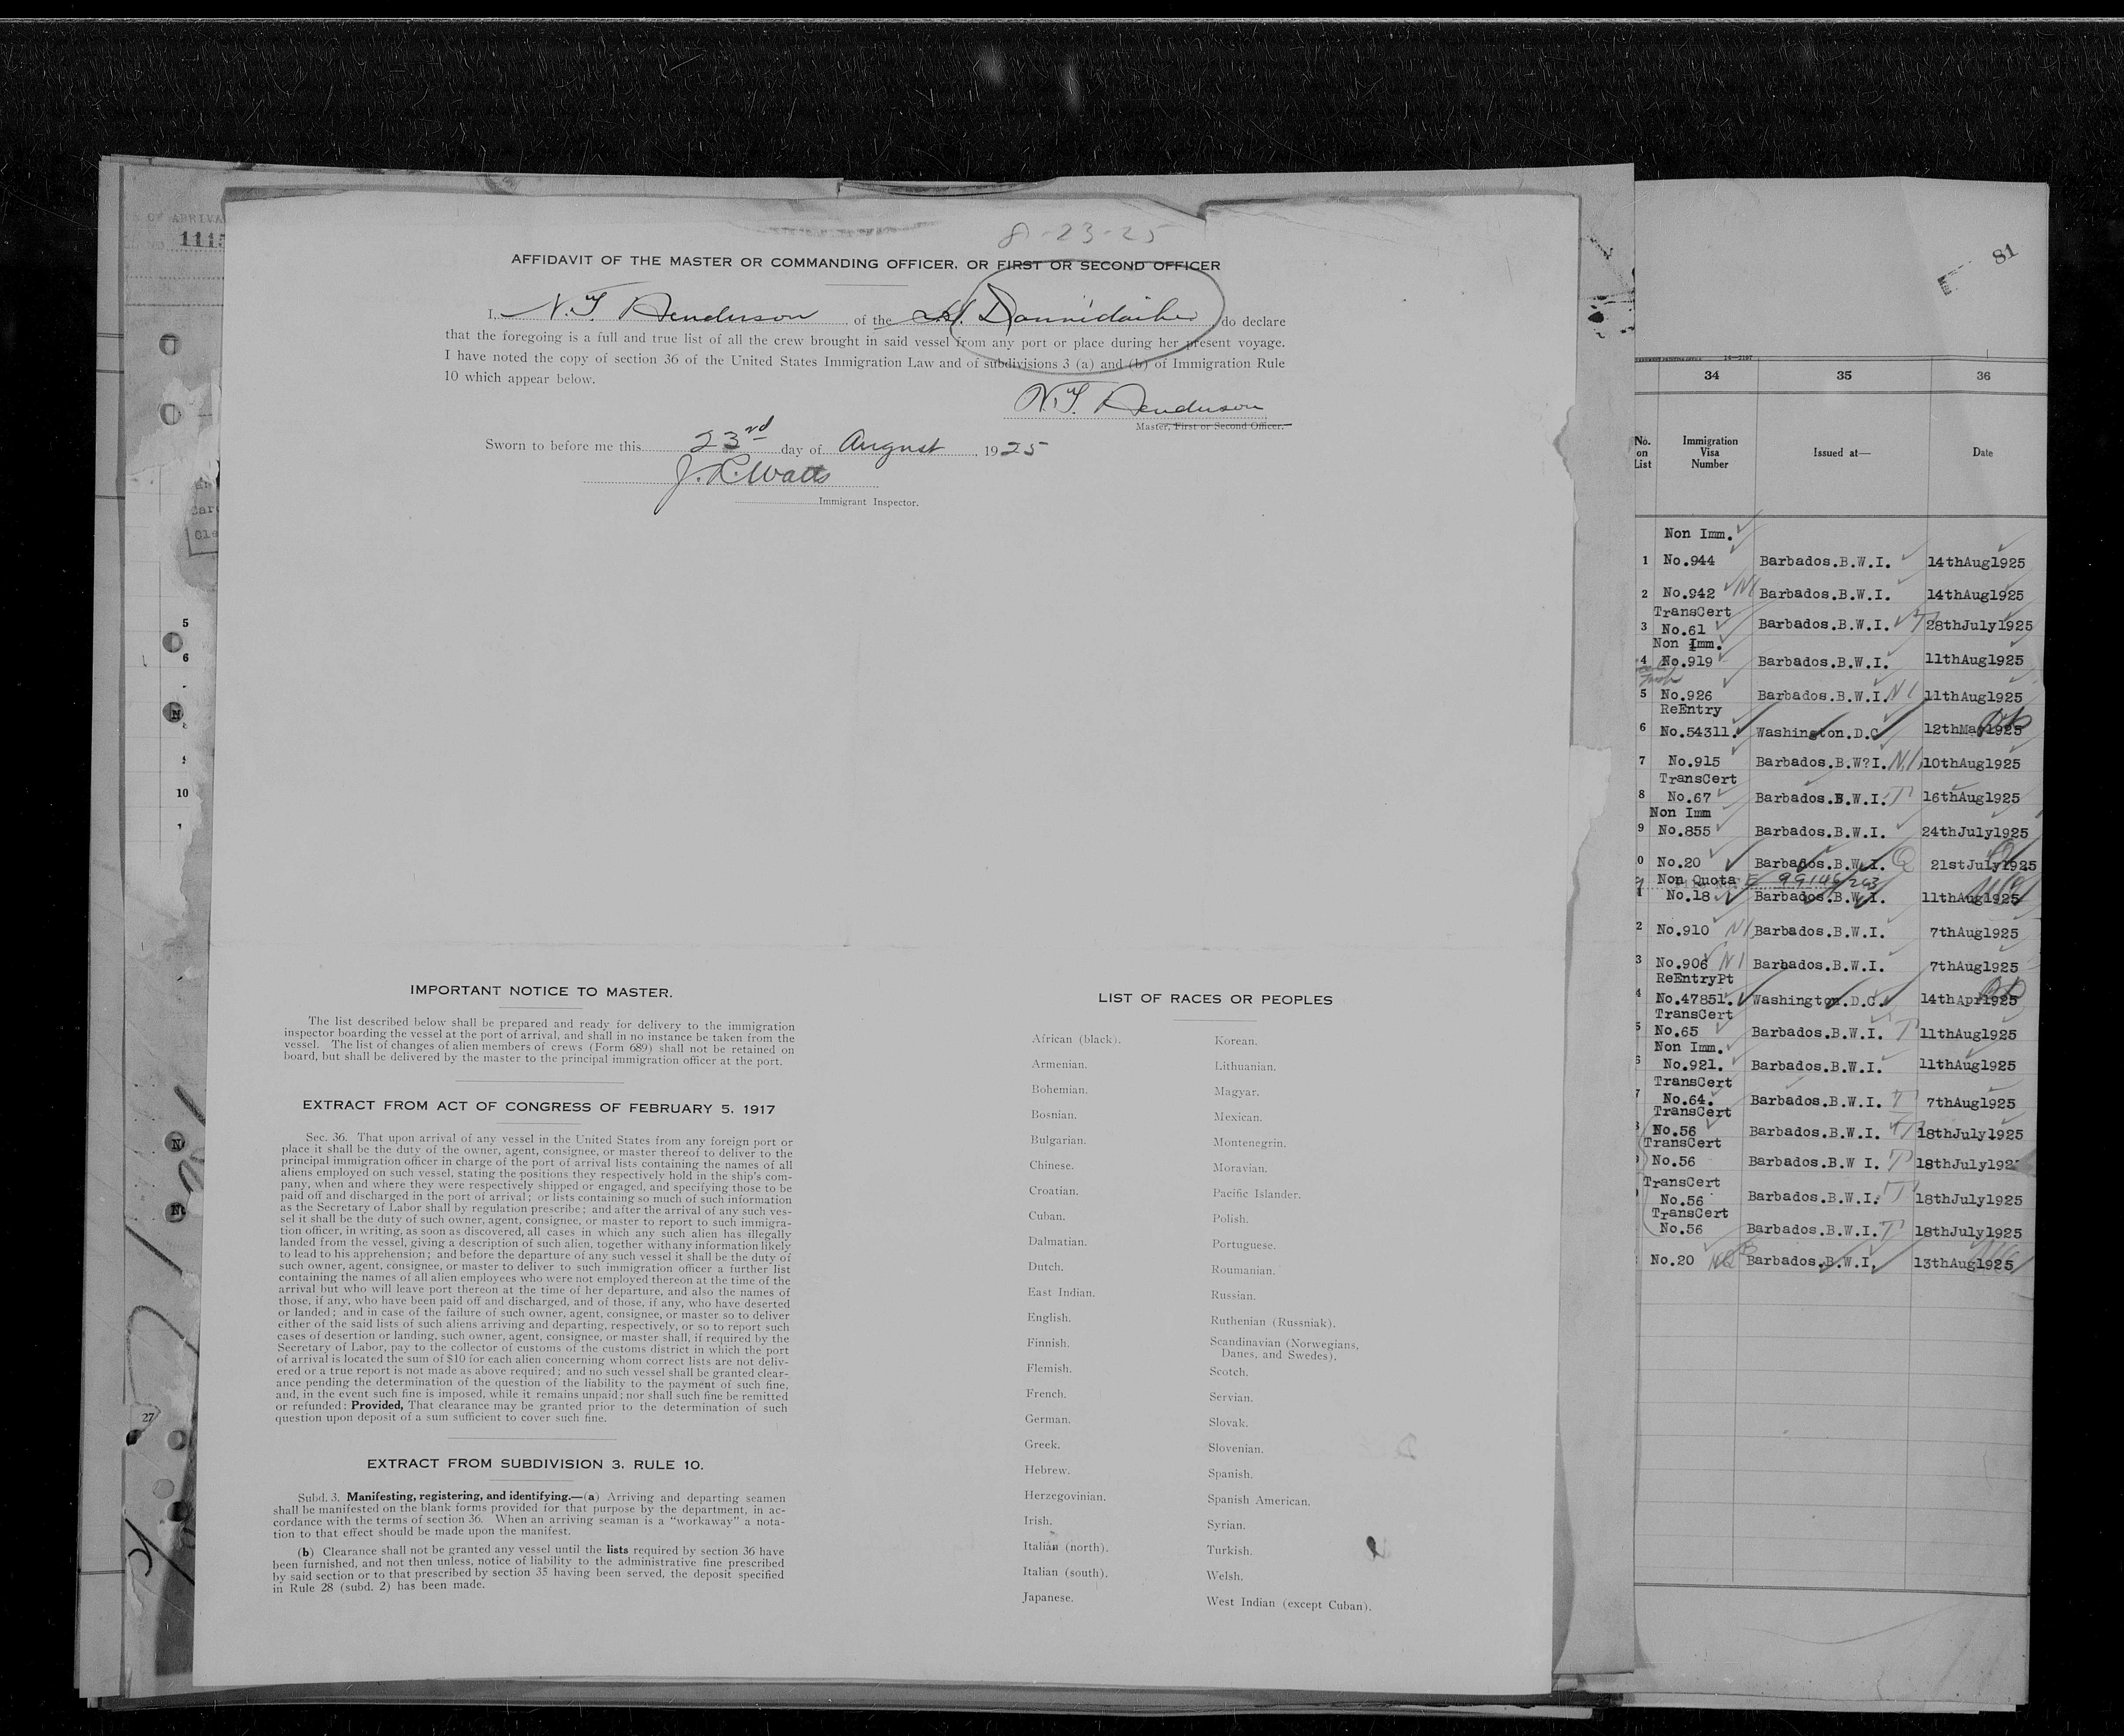 8-23-25
AFFIDAVIT OF THE MASTER OR COMMANDING OFFICER, OR FIRST OR SECOND OFFICER
I, N.T. Henderson, of the do declare
that the foregoing is a full and true list of all the crew brought in said vessel from any port or place during her present voyage.
I have noted the copy of section 36 of the United States Immigration Law and of subdivisions 3 (a) and (b) of Immigration Rule
10 which appear below.
N.T. Henderson
Master, First or Second Officer.
Sworn to before me this 23rd day of August, 1925
J. R. Watts
Immigrant Inspector.
IMPORTANT NOTICE TO MASTER.
The list described below shall be prepared and ready for delivery to the immigration
inspector boarding the vessel at the port of arrival, and shall in no instance be taken from the
vessel. The list of changes of alien members of crews (Form 689) shall not be retained on
board, but shall be delivered by the master to the principal immigration officer at the port.
EXTRACT FROM ACT OF CONGRESS OF FEBRUARY 5, 1917
Sec. 36. That upon arrival of any vessel in the United States from any foreign port or
place it shall be the duty of the owner, agent, consignee, or master thereof to deliver to the
principal immigration officer in charge of the port of arrival lists containing the names of all
aliens employed on such vessel, stating the positions they respectively hold in the ship's com-
pany, when and where they were respectively shipped or engaged, and specifying those to be
paid off and discharged in the port of arrival; or lists containing so much of such information
as the Secretary of Labor shall by regulation prescribe; and after the arrival of any such ves-
sel it shall be the duty of such owner, agent, consignee, or master to report to such immigra-
tion officer, in writing, as soon as discovered, all cases in which any such alien has illegally
landed from the vessel, giving a description of such alien, together with any information likely
to lead to his apprehension; and before the departure of any such vessel it shall be the duty of
such owner, agent, consignee, or master to deliver to such immigration officer a further list
containing the names of all alien employees who were not employed thereon at the time of the
arrival but who will leave port thereon at the time of her departure, and also the names of
those, if any, who have been paid off and discharged, and of those, if any, who have deserted
or landed; and in case of the failure of such owner, agent, consignee, or master so to deliver
either of the said lists of such aliens arriving and departing, respectively, or so to report such
cases of desertion or landing, such owner, agent, consignee, or master shall, if required by the
Secretary of Labor, pay to the collector of customs of the customs district in which the port
of arrival is located the sum of $10 for each alien concerning whom correct lists are not deliv-
ered or a true report is not made as above required; and no such vessel shall be granted clear-
ance pending the determination of the question of the liability to the payment of such fine,
and, in the event such fine is imposed, while it remains unpaid; nor shall such fine be remitted
or refunded: Provided, That clearance may be granted prior to the determination of such
question upon deposit of a sum sufficient to cover such fine.
EXTRACT FROM SUBDIVISION 3, RULE 10.
Subd. 3. Manifesting, registering, and identifying.—(a) Arriving and departing seamen
shall be manifested on the blank forms provided for that purpose by the department, in ac-
cordance with the terms of section 36. When an arriving seaman is a "workaway" a nota-
tion to that effect should be made upon the manifest.
(b) Clearance shall not be granted any vessel until the lists required by section 36 have
been furnished, and not then unless, notice of liability to the administrative fine prescribed
by said section or to that prescribed by section 35 having been served, the deposit specified
in Rule 28 (subd. 2) has been made.
LIST OF RACES OR PEOPLES
African (black).
Armenian.
Bohemian.
Bosnian.
Bulgarian.
Chinese.
Croatian.
Cuban.
Dalmatian.
Dutch.
East Indian.
English.
Finnish.
Flemish.
French.
German.
Greek.
Hebrew.
Herzegovinian.
Irish.
Italian (north).
Italian (south).
Japanese.
Korean.
Lithuanian.
Magyar.
Mexican.
Montenegrin.
Moravian.
Pacific Islander.
Polish.
Portuguese.
Roumanian.
Russian.
Ruthenian (Russniak).
Scandinavian (Norwegians,
Danes, and Swedes).
Scotch.
Servian.
Slovak.
Slovenian.
Spanish.
Spanish American.
Syrian.
Turkish.
Welsh.
West Indian (except Cuban).
81
34 35 36
No. on List Immigration Visa Number Issued at— Date
Non Imm.
1 No.944 Barbados.B.W.I. 14thAug1925
2 No.942 NI Barbados.B.W.I. 14thAug1925
TransCert
3 No.61 Barbados.B.W.I. T 28thJuly1925
Non Imm.
4 No.919 Barbados.B.W.I. 11thAug1925
5 No.926 Barbados.B.W.I. NI 11thAug1925
ReEntry
6 No.54311. Washington.D.C 12thMay1925
7 No.915 Barbados.B.W?I. NI 10thAug1925
TransCert
8 No.67 Barbados.B.W.I. T 16thAug1925
Non Imm
9 No.855 Barbados.B.W.I. 24thJuly1925
0 No.20 Barbados.B.W.I. Q 21stJuly1925
Non Quota
1 No.18 Barbados.B.W.I. 11thAug1925
2 No.910 NI Barbados.B.W.I. 7thAug1925
3 No.906 NI Barbados.B.W.I. 7thAug1925
ReEntryPt
4 No.47851. Washington.D.C. 14thApr1925
TransCert
5 No.65 Barbados.B.W.I. T 11thAug1925
Non Imm.
6 No.921. Barbados.B.W.I. 11thAug1925
TransCert
7 No.64. Barbados.B.W.I. T 7thAug1925
TransCert
No.56 Barbados.B.W.I. T 18thJuly1925
TransCert
No.56 Barbados.B.W I. T 18thJuly192
TransCert
No.56 Barbados.B.W.I. T 18thJuly1925
TransCert
No.56 Barbados.B.W.I. T 18thJuly1925
No.20 NQ Barbados.B.W.I. 13thAug1925
1115
5
6
10
27